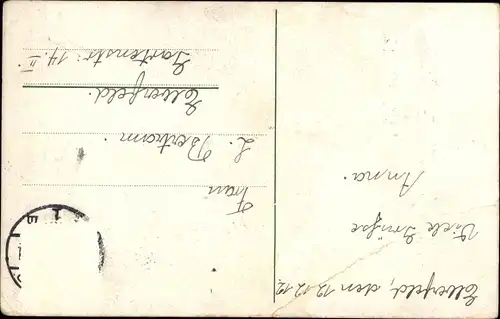 Elberfeld, den 12.12.12
Viele Grüße
Anna.
Frau
L. Bertram.
Elberfeld.
Gartenstr. 14. II.